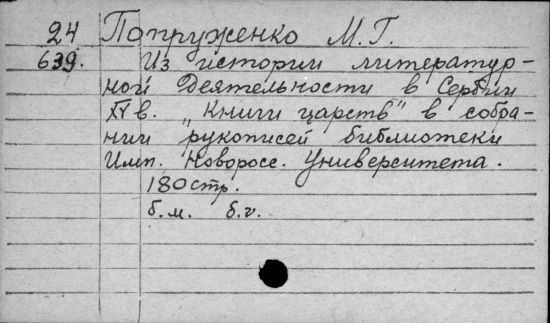 24 Попруженко М. Г.
639. Из истории литератур-
ной деятельности в Сербии
XV в. „Книги царств" в собра-
нии рукописей библиотеки
Имп. Новоросс. Университета.
180 стр.
б. м. б. г.